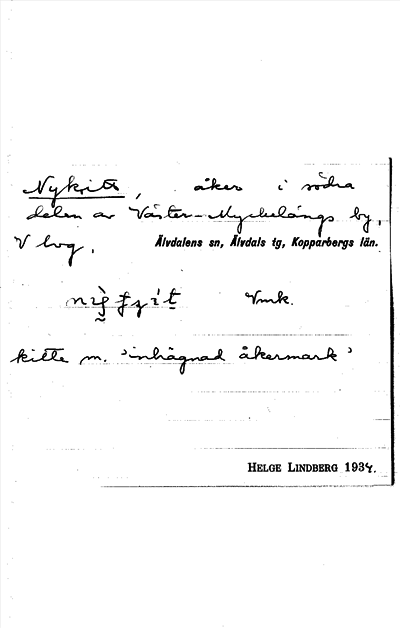 Nykitte, åker i södra
delen av Väster-Myckelängs by,
V lvg, Älvdalens sn, Älvdals tg, Kopparbergs län.
Vmk.
kitte m. 'inhägnad åkermark'
HELGE LINDBERG 1934.